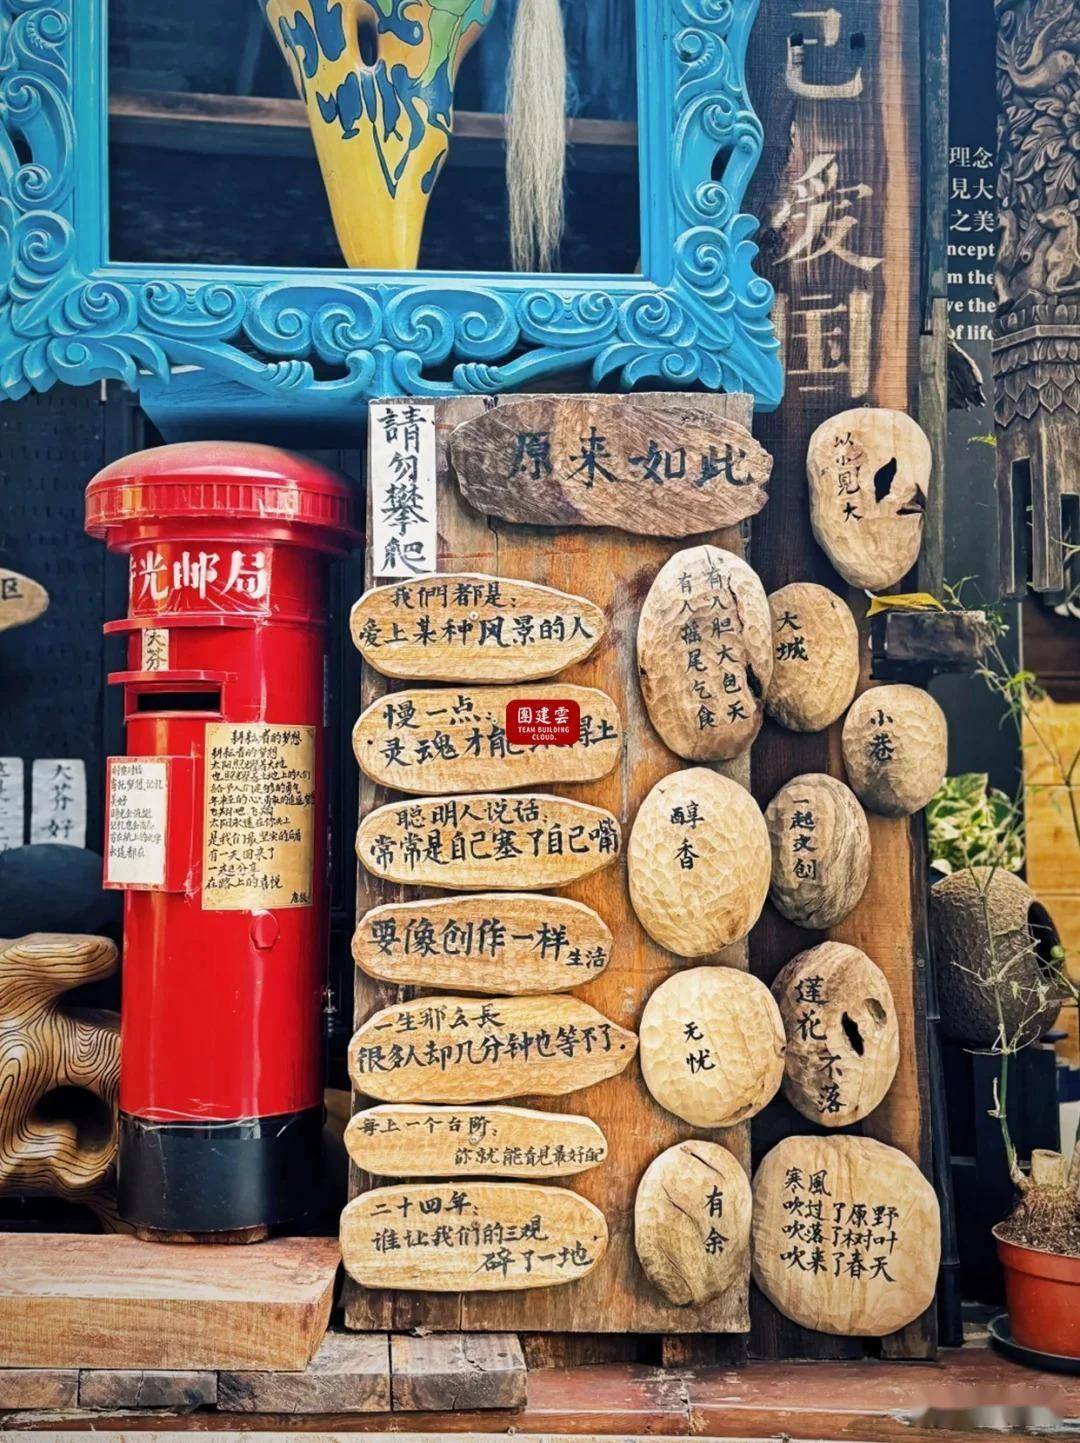 己爱国
理念
見大
之美
ncept
m the
ve the
of life
請勿攀爬
原来如此
以小見大
光邮局
大芬
我們都是：
爱上某种风景的人
慢一点：
灵魂才能
土
團建雲
TEAM BUILDING
CLOUD.
聪明人说话：
常常是自己塞了自己嘴
要像创作一样
生活
一生那么長
很多人却几分钟也等不了.
每上一个台阶：
你就能看見最好的
二十四年：
谁让我們的三观
碎了一地.
有人胆大包天
有人摇尾乞食
大城
小巷
醇香
一起文创
无忧
莲花不落
有余
寒風
吹过了原野
吹落了树叶
吹来了春天
耕耘者的梦想
耕耘者的梦想
是我们最坚实的后盾
有一天回来了
在路上的喜悦
永遠都在
大芬
好
区